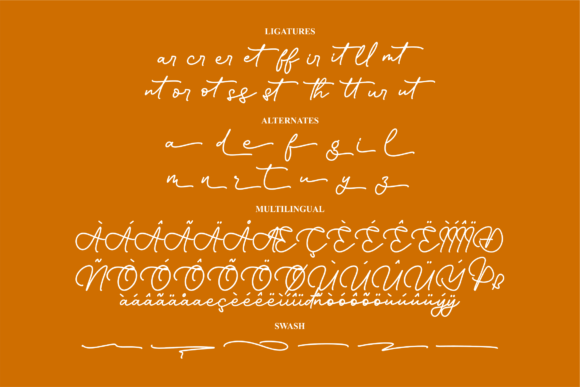 LIGATURES
ar cr er et ff ir it ll mt
nt or ot ss st th tt ur ut
ALTERNATES
a d e f g i l
m n r t u y z
MULTILINGUAL
ÀÁÂÃÄÅÆÇÈÉÊËÌÍÎÏÐ
ÑÒÓÔÕÖØÙÚÛÜÝÞß
àáâãäåaeçèéêëìíîïđñòóôõöùúûüýÿ
SWASH